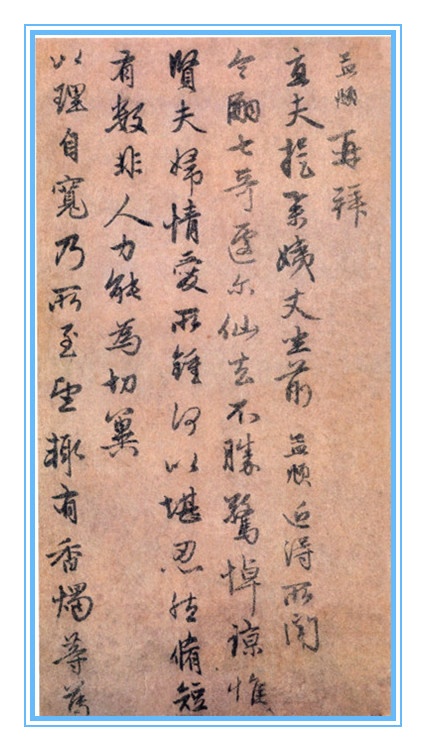 孟頫再拜
直夫提舉姨丈坐前孟頫近得所聞
令嗣七哥遽尔仙去不勝驚悼諒惟
賢夫婦情愛所鍾何以堪忍然脩短
有數非人力能為切冀
以理自寬乃所至望輒有香燭等